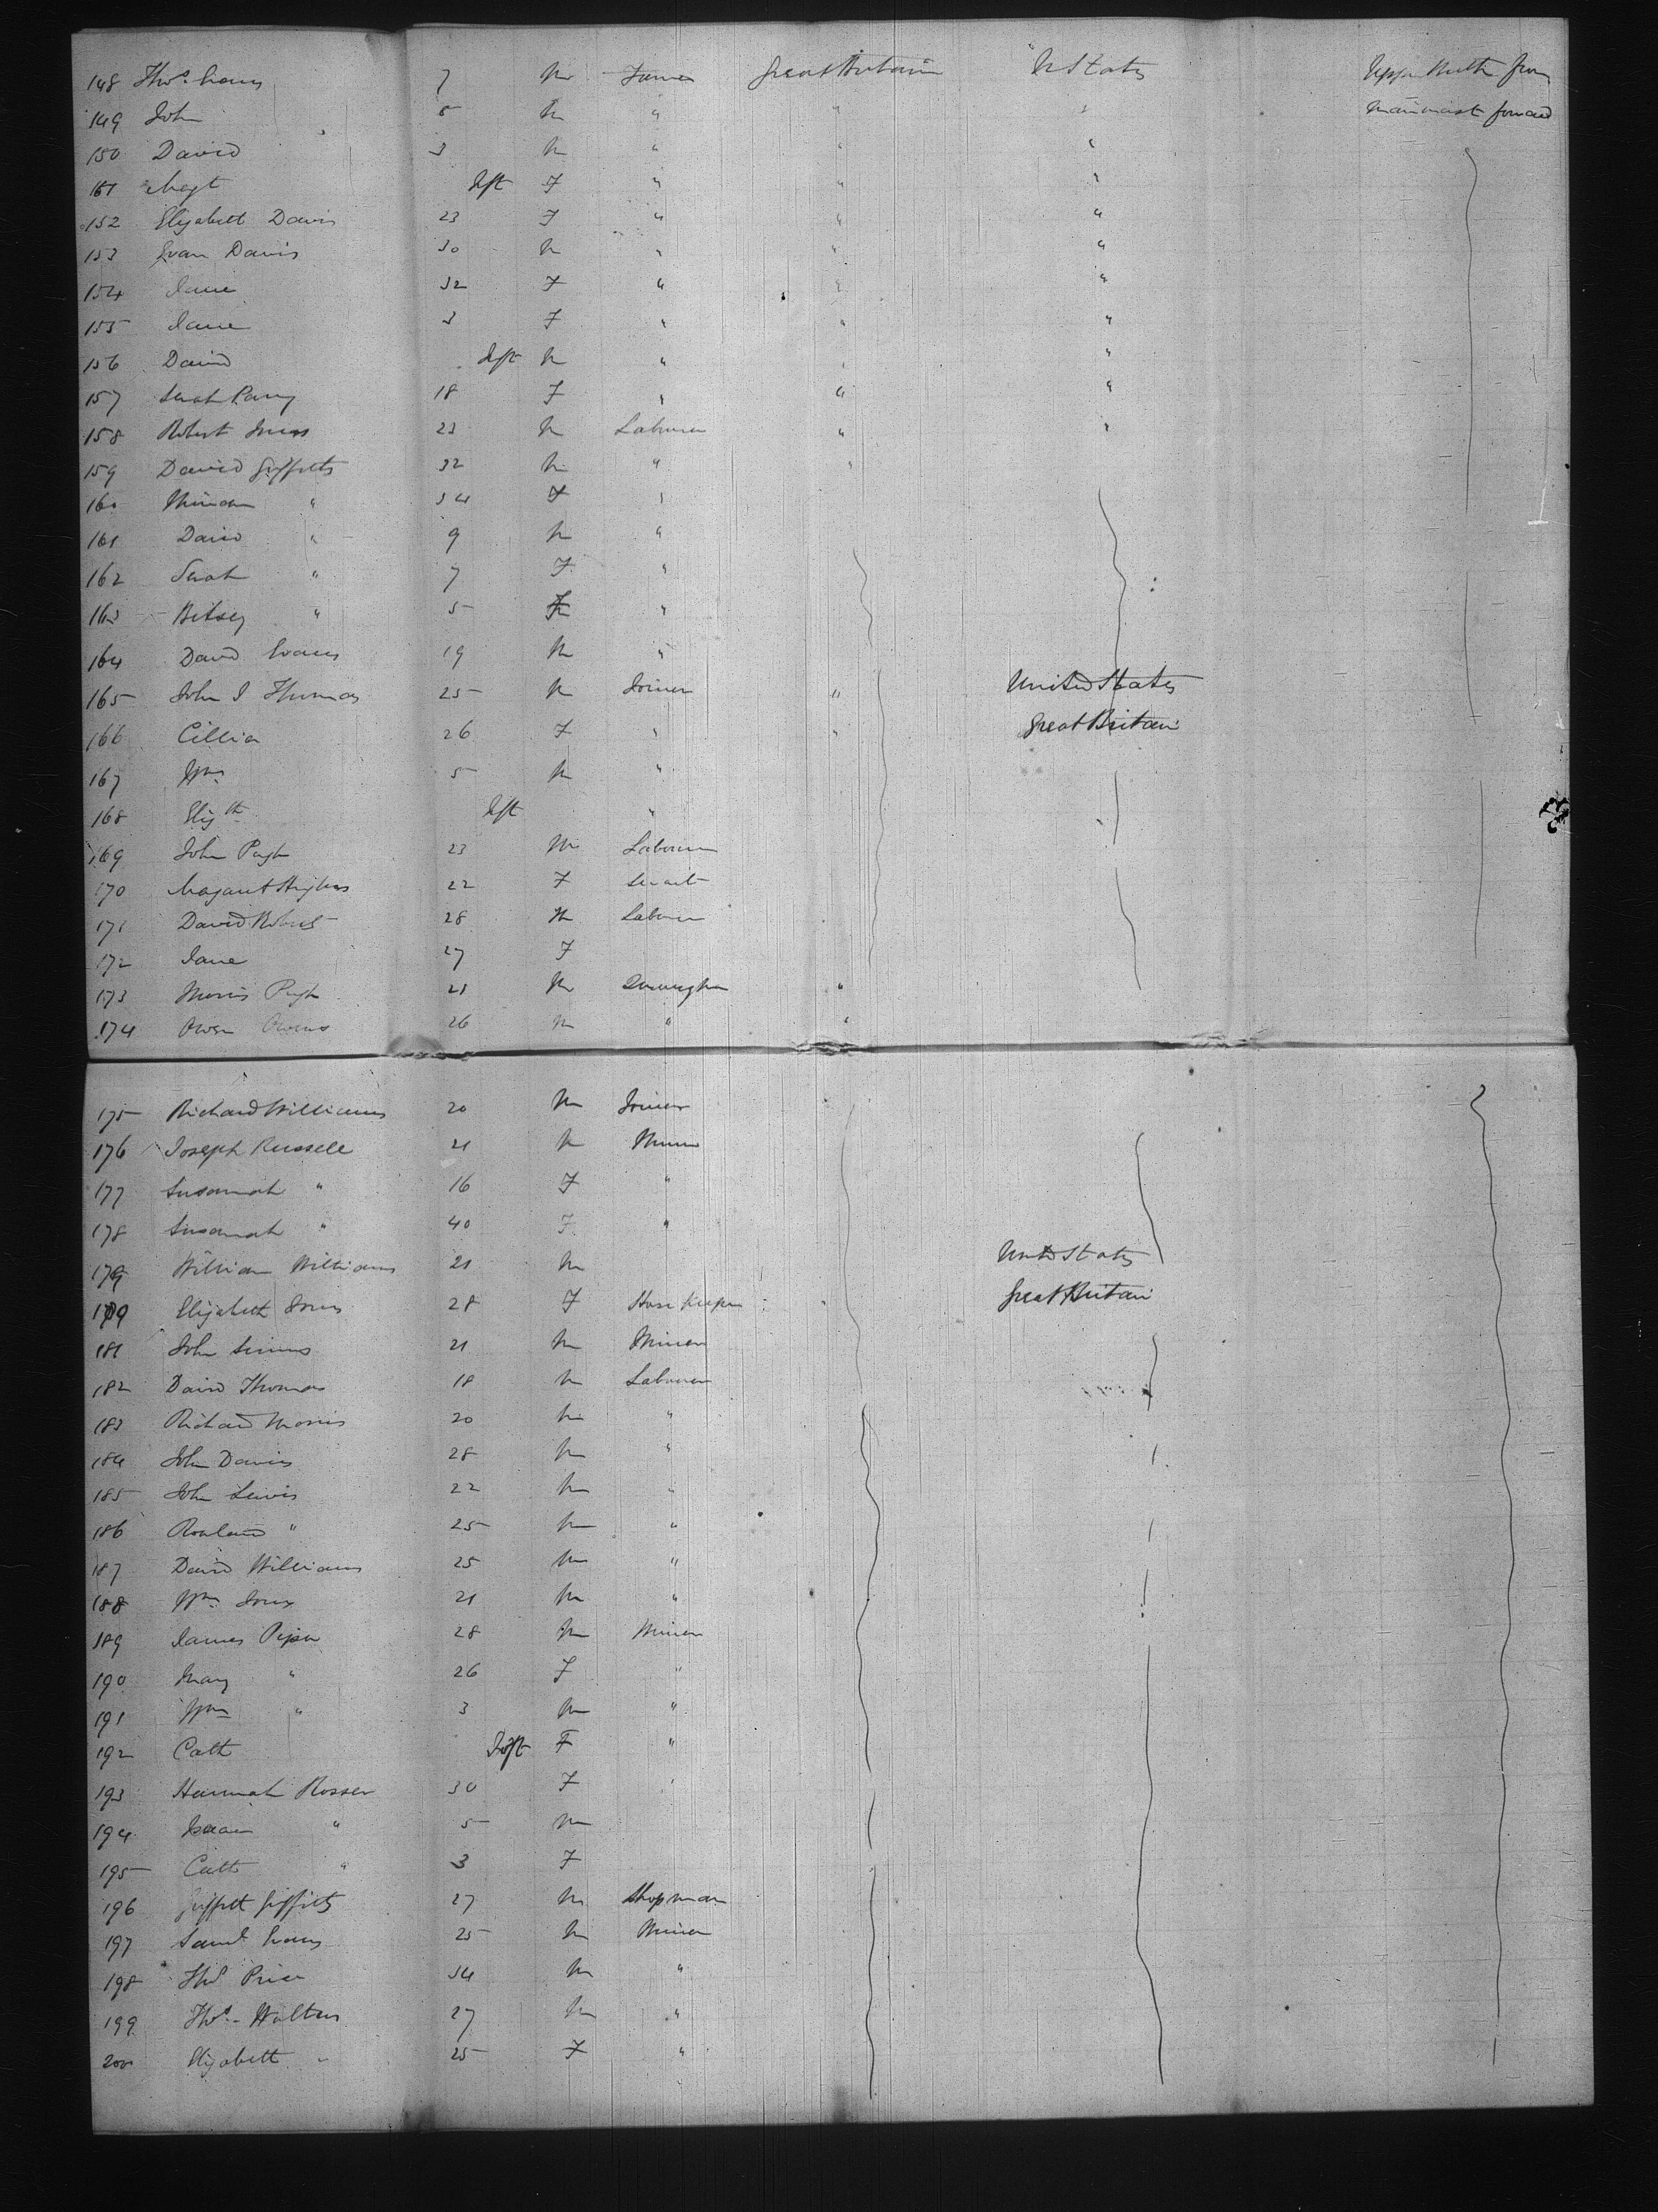 148 Thos. Evans 7 M Farmer Great Britain U States Upper Berth from
149 John 5 M " " " Mainmast forward
150 David 3 M " " "
151 Magt Inft F " " "
152 Elizabeth Davis 23 F " " "
153 Evan Davis 30 M " " "
154 Jane 32 F " " "
155 Jane 3 F " " "
156 David Inft M " " "
157 Sarah Parry 18 F " " "
158 Robert 23 M Laborer " "
159 David Griffiths 32 M " "
160 Miriam " 34 F "
161 David " 9 M "
162 Sarah " 7 F "
163 Betsey " 5 F "
164 David Evans 19 M "
165 John J Thomas 25 M Joiner " United States
166 Cillia 26 F " " Great Britain
167 Wm 5 M "
168 Elizth Inft "
169 John Pugh 23 M Laborer
170 Magaret Hughes 22 F Servant
171 David Robert 28 M Laborer
172 Jane 27 F
173 Morris Pugh 21 M "
174 Owen Owens 26 M " "
175 Richard Williams 20 M Joiner
176 Joseph Russell 21 M Miner
177 Susannah " 16 F "
178 Susannah " 40 F "
179 William Williams 21 M United States
Elizabeth Jones 28 F House Keeper Great Britain
181 John Simms 21 M Miner
182 David Thomas 18 M Laborer
183 Richard Morris 20 M "
184 John Davies 28 M "
185 John Lewis 22 M "
186 Rowland " 25 M "
187 David Williams 25 M "
188 Wm Jones 21 M "
189 James Piper 28 M Miner
190 Mary " 26 F "
191 Wm " 3 M "
192 Cath Inft F "
193 Hannah Rosser 30 F "
194 Isaac " 5 M
195 Cath " 3 F
196 Griffith Griffiths 27 M Shopman
197 Saml Evans 25 M Miner
198 Thos Price 34 M "
199 Thos. Walters 27 M "
200 Elizabeth " 25 F "